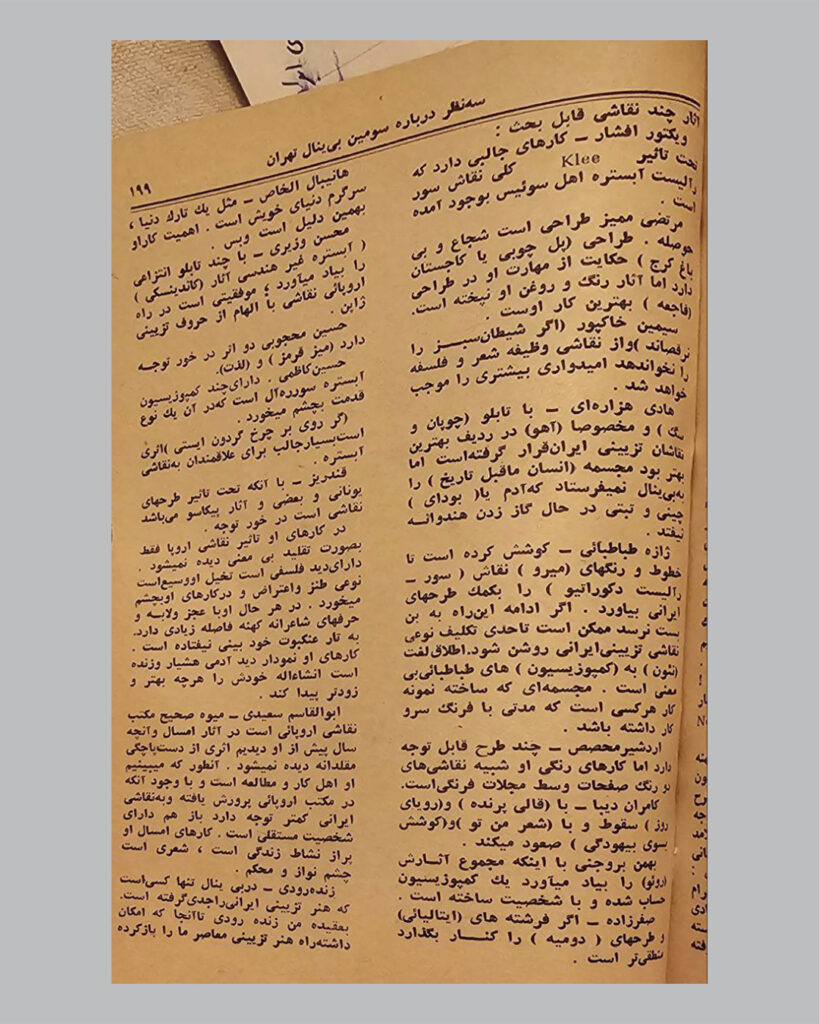 سه‌نظر درباره سومین بی‌ینال تهران
۱۹۹
آثار چند نقاشی قابل بحث :
ویکتور افشار – کارهای جالبی دارد که
تحت تاثیر Klee کلی نقاش سور
رآلیست آبستره اهل سوئیس بوجود آمده
است .
مرتضی ممیز طراحی است شجاع و بی
حوصله . طراحی (پل چوبی یا کاجستان
باغ کرج ) حکایت از مهارت او در طراحی
دارد اما آثار رنگ و روغن او نپخته است.
(فاجعه ) بهترین کار اوست .
سیمین خاکپور (اگر شیطان‌سبز را
نرقصاند )واز نقاشی وظیفه شعر و فلسفه
را نخواندهد امیدواری بیشتری را موجب
خواهد شد .
هادی هزاره‌ای – با تابلو (چوپان و
سگ ) و مخصوصا (آهو) در ردیف بهترین
نقاشان تزیینی ایران‌قرار گرفته‌است اما
بهتر بود مجسمه (انسان ماقبل تاریخ ) را
به‌بی‌ینال نمیفرستاد که‌آدم یا( بودای )
چینی و تبتی در حال گاز زدن هندوانه
نیفتد .
ژازه طباطبائی – کوشش کرده است تا
خطوط و رنگهای (میرو ) نقاش ( سور –
رآلیست دکوراتیو ) را بکمک طرحهای
ایرانی بیاورد . اگر ادامه این‌راه به بن
بست نرسد ممکن است تاحدی تکلیف نوعی
نقاشی تزیینی‌ایرانی روشن شود.اطلاق‌لغت
(نئون ) به (کمپوزیسیون ) های طباطبائی‌بی
معنی است . مجسمه‌ای که ساخته نمونه
کار هرکسی است که مدتی با فرنگ سرو
کار داشته باشد .
اردشیرمحصص – چند طرح قابل توجه
دارد اما کارهای رنگی او شبیه نقاشی‌های
دو رنگ صفحات وسط مجلات فرنگی‌است.
کامران دیبا – با (قالی پرنده ) و(رویای
روز ) سقوط و با (شعر من تو )و(کوشش
بسوی بیهودگی ) صعود میکند .
بهمن بروجنی با اینکه مجموع آثارش
(روئو) را بیاد میآورد یك کمپوزیسیون
حساب شده و با شخصیت ساخته است .
صفرزاده – اگر فرشته های (ایتالیائی)
و طرحهای ( دومیه ) را کنار بگذارد
منطقی‌تر است .
هانیبال الخاص – مثل یك تارك دنیا ،
سرگرم دنیای خویش است . اهمیت کاراو
بهمین دلیل است وبس .
محسن وزیری – با چند تابلو انتزاعی
( آبستره غیر هندسی آثار (کاندینسکی )
را بیاد میآورد ، موفقیتی است در راه
اروپائی نقاشی با الهام از حروف تزیینی
ژاپن .
حسین محجوبی دو اثر در خور توجه
دارد (میز قرمز ) و (لذت).
حسین‌کاظمی . دارای‌چند کمپوزیسیون
آبستره سوررە‌آل است که‌در آن یك نوع
قدمت بچشم میخورد .
(گر روی بر چرخ گردون ایستی )اثری
است‌بسیارجالب برای علاقمندان به‌نقاشی
آبستره .
قندریز – با آنکه تحت تاثیر طرحهای
یونانی و بعضی و آثار پیکاسو می‌باشد
نقاشی است در خور توجه .
در کارهای او تاثیر نقاشی اروپا فقط
بصورت تقلید بی معنی دیده نمیشود .
دارای‌دید فلسفی است تخیل اووسیع‌است
نوعی طنز واعتراض و درکارهای اوبچشم
میخورد . در هر حال اوبا عجز ولابه و
حرفهای شاعرانه کهنه فاصله زیادی دارد.
به تار عنکبوت خود بینی نیفتاده است .
کارهای او نمودار دید آدمی هشیار وزنده
است انشاءاله خودش را هرچه بهتر و
زودتر پیدا کند .
ابوالقاسم سعیدی – میوه صحیح مکتب
نقاشی اروپائی است در آثار امسال وآنچه
سال پیش از او دیدیم اثری از دست‌پاچگی
مقلدانه دیده نمیشود . آنطور که میبینیم
او اهل کار و مطالعه است و با وجود آنکه
در مکتب اروپائی پرورش یافته وبه‌نقاشی
ایرانی کمتر توجه دارد باز هم دارای
شخصیت مستقلی است . کارهای امسال او
پراز نشاط زندگی است ، شعری است
چشم نواز و محکم .
زنده‌رودی – دربی ینال تنها کسی‌است
که هنر تزیینی ایرانی‌راجدی‌گرفته است.
بعقیده من زنده رودی تاآنجا که امکان
داشته‌راه هنر تزیینی معاصر ما را بازکرده